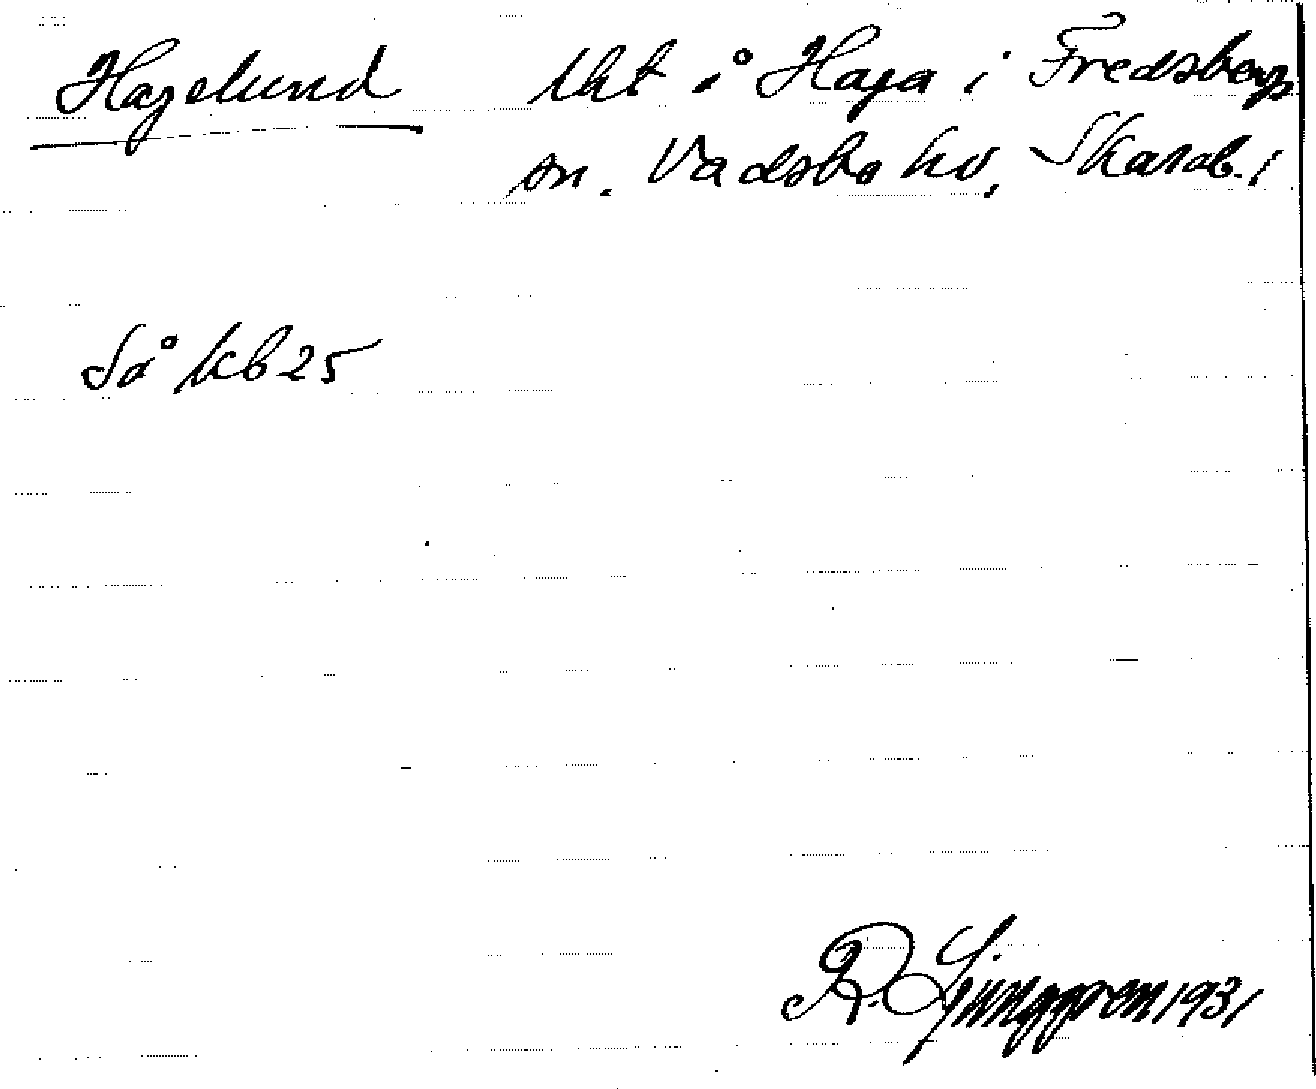 Hagelund lht å Haga i Fredsberg
sn. Vadsbo hd, Skarab. l
Så kb 25
R. Ljunggren 1931